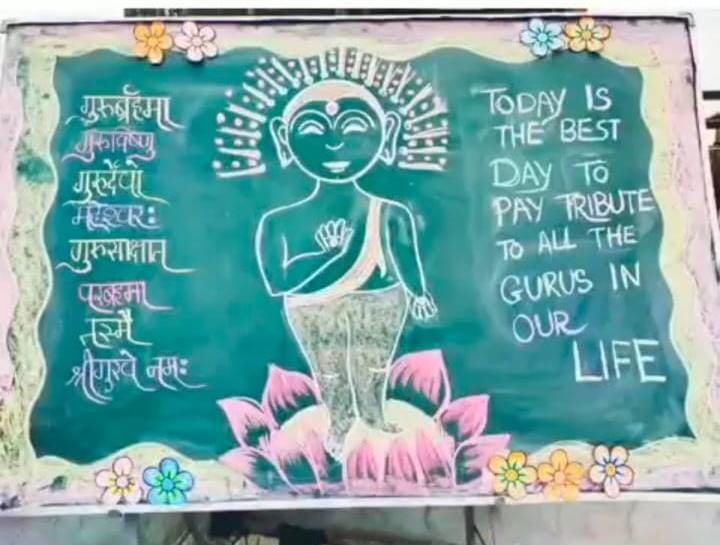 गुरुर्ब्रह्मा
गुरुर्विष्णु
गुरुर्देवो
महेश्वर:
गुरुसाक्षात
परब्रह्मा
तस्मै
श्रीगुरवे नम:
TODAY IS
THE BEST
DAY TO
PAY TRIBUTE
TO ALL THE
GURUS IN
OUR
LIFE